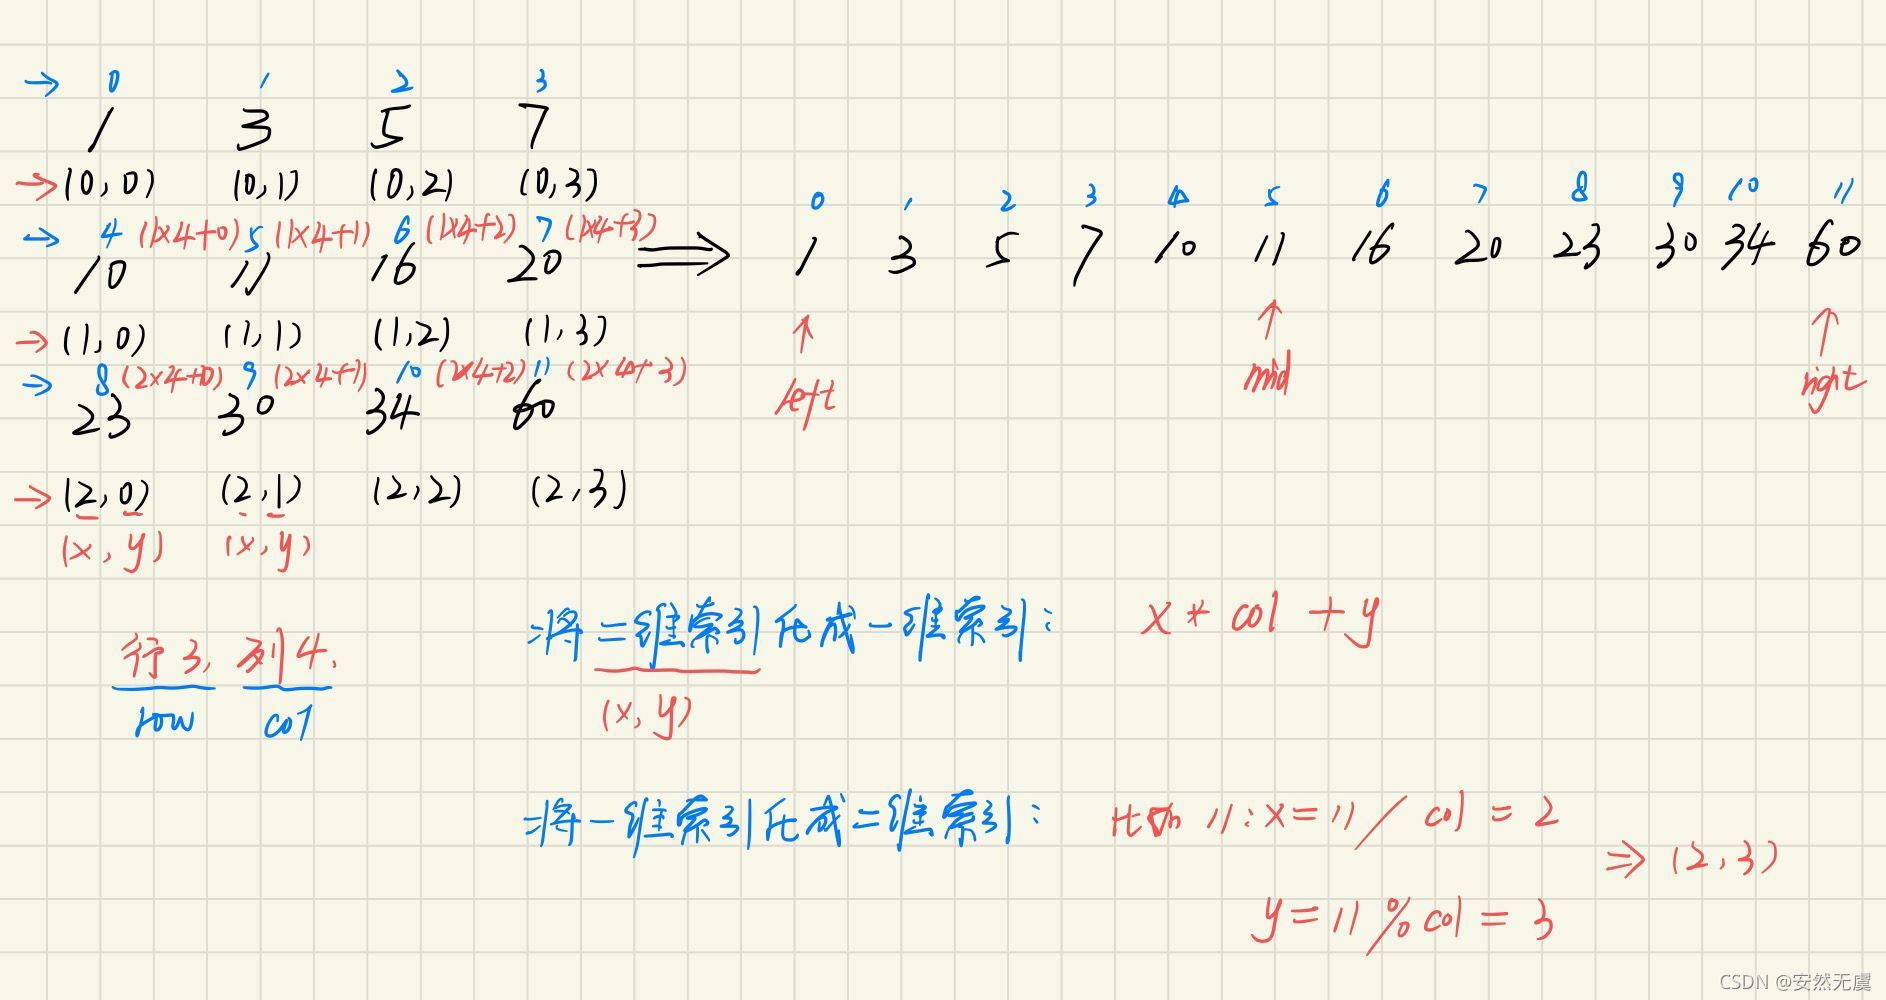 → 0 1 2 3
1 3 5 7
→ (0,0) (0,1) (0,2) (0,3)
→ 4 (1×4+0) 5 (1×4+1) 6 (1×4+2) 7 (1×4+3)
10 11 16 20
→ (1,0) (1,1) (1,2) (1,3)
→ 8 (2×4+0) 9 (2×4+1) 10 (2×4+2) 11 (2×4+3)
23 30 34 60
→ (2,0) (2,1) (2,2) (2,3)
(x,y) (x,y)
⇒ 0 1 2 3 4 5 6 7 8 9 10 11
1 3 5 7 10 11 16 20 23 30 34 60
↑ ↑ ↑
left mid right
行3, 列4.
row col
将二维索引化成一维索引: x * col + y
(x,y)
将一维索引化成二维索引: 比如 11: x = 11 / col = 2
⇒ (2,3)
y = 11 % col = 3
CSDN @安然无虞